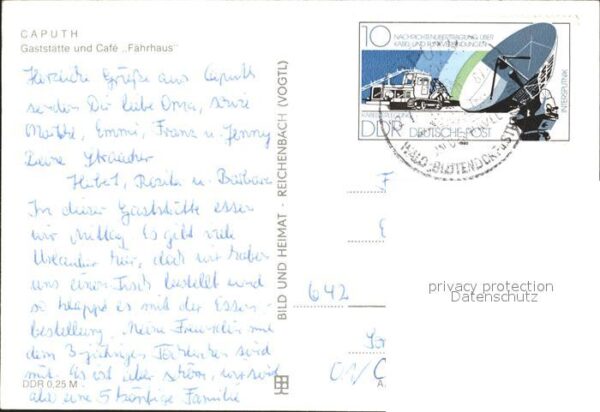 CAPUTH
Gaststätte und Café „Fährhaus"
Herzliche Grüße aus Caputh
senden Dir liebe Oma, sowie
Emmi, Franz u. Jenny
Deine
Hubert, Rosita u. Barbara
In dieser Gaststätte essen
wir Mittag. Es gibt viele
Urlauber hier, doch wir haben
uns einen Tisch bestellt und
so klappt es mit der Essen-
bestellung. Meine Freundin mit
dem 3-jährigen Töchterchen sind
mit. Es ist aber schön, wir sind
also eine 5 köpfige Familie
DDR 0,25 M
BILD UND HEIMAT - REICHENBACH (VOGTL)
10
NACHRICHTENÜBERTRAGUNG ÜBER
KABEL- UND FUNKVERBINDUNGEN
INTERSPUTNIK
DDR DEUTSCHE POST
642
privacy protection
Datenschutz